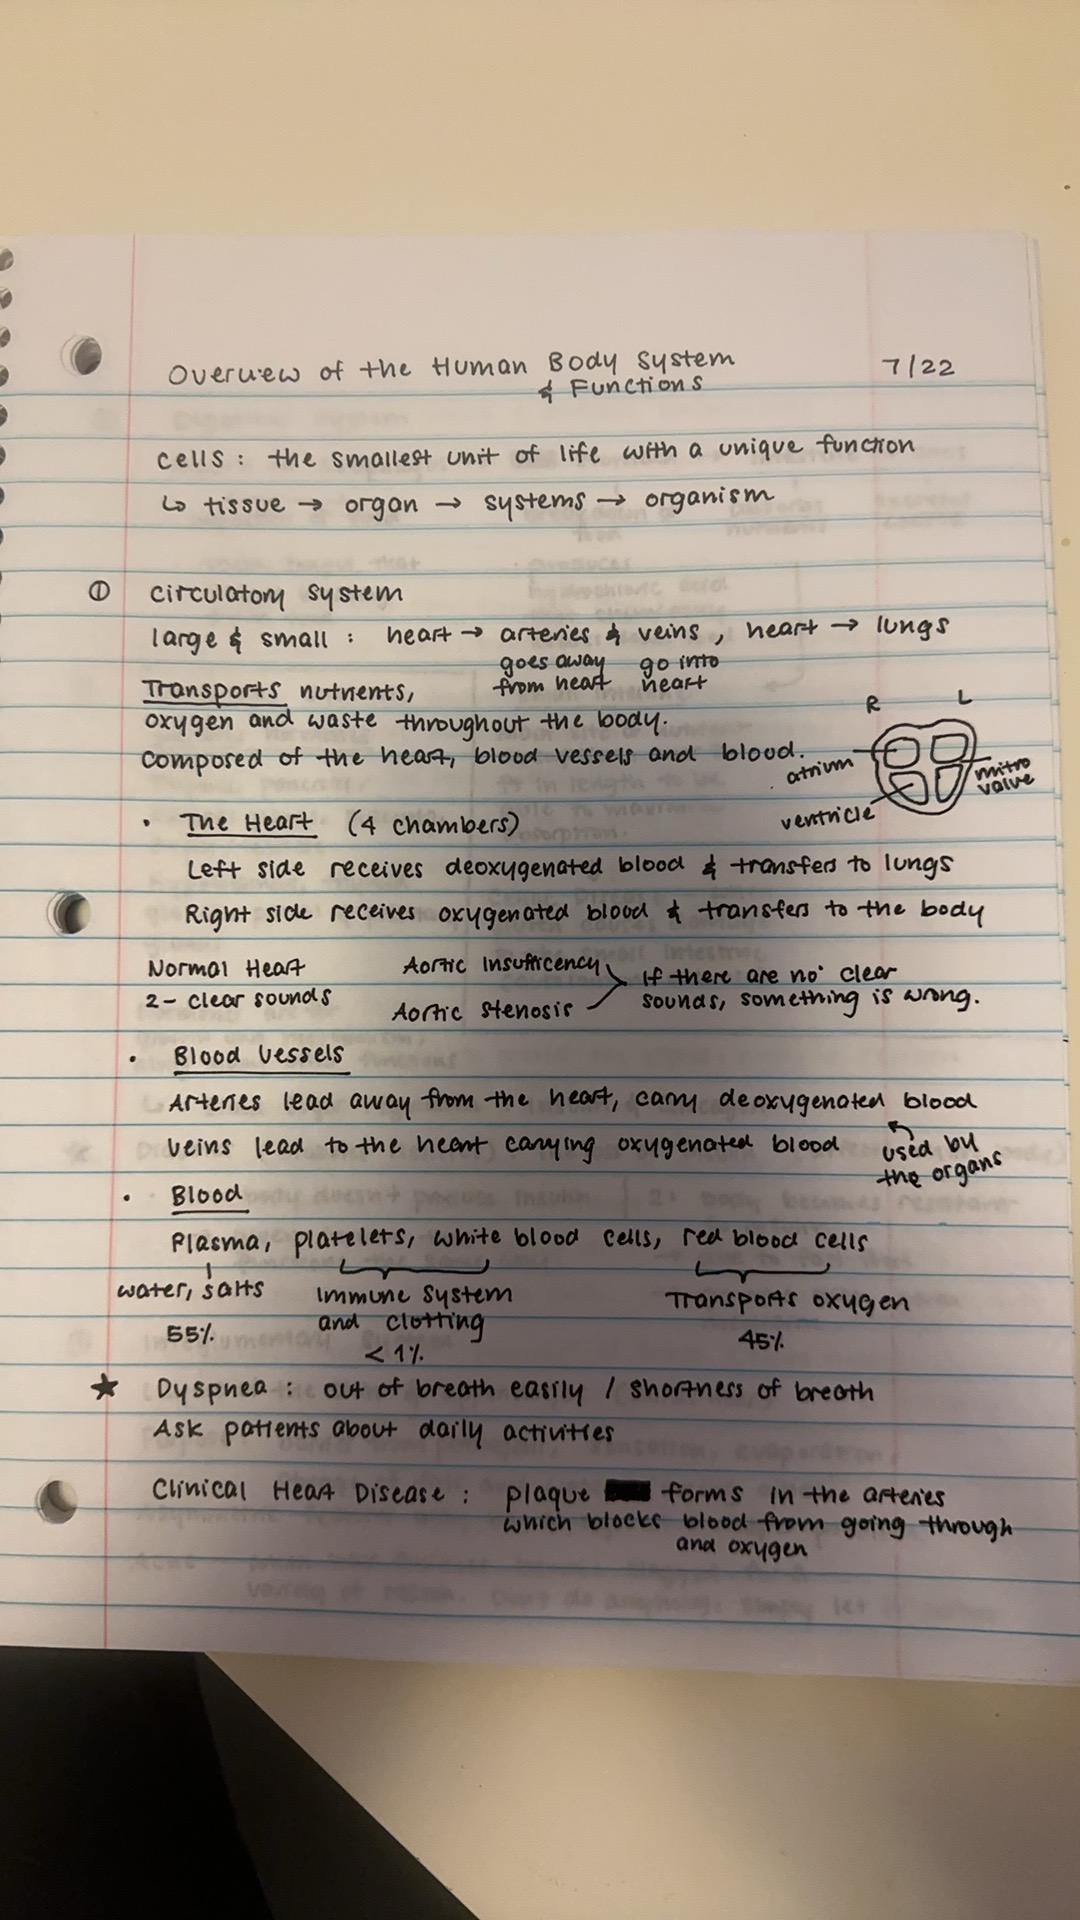 Overview of the Human Body System
& Functions
7/22
cells : the smallest unit of life with a unique function
↳ tissue → organ → systems → organism
① circulatory system
large & small : heart → arteries & veins , heart → lungs
goes away go into
from heart heart
Transports nutrients,
oxygen and waste throughout the body.
composed of the heart, blood vessels and blood.
R L
atrium
mitro
valve
ventricle
• The Heart (4 chambers)
Left side receives deoxygenated blood & transfers to lungs
Right side receives oxygenated blood & transfers to the body
Normal Heart
2 - clear sounds
Aortic Insufficency
Aortic Stenosis
If there are no clear
sounds, something is wrong.
• Blood Vessels
Arteries lead away from the heart, carry deoxygenated blood
veins lead to the heart carrying oxygenated blood
used by
the organs
• Blood
Plasma, platelets, white blood cells, red blood cells
water, salts
55%
immune system
and clotting
< 1%
Transports oxygen
45%
★ Dyspnea : out of breath easily / shortness of breath
Ask patients about daily activities
Clinical Heart Disease : plaque forms in the arteries
which blocks blood from going through
and oxygen